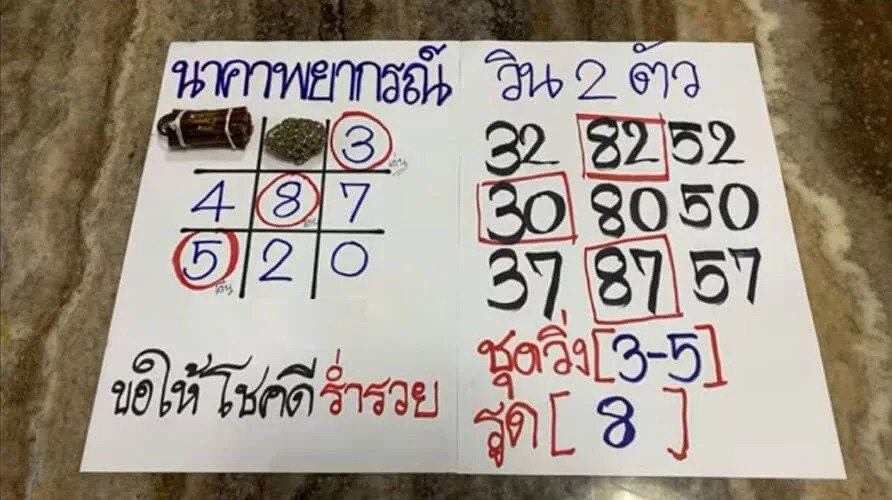 นาคาพยากรณ์
3
4 8 7
5 2 0
ขอให้โชคดี ร่ำรวย
วิน 2 ตัว
32 82 52
30 80 50
37 87 57
ชุดวิ่ง [3-5]
รูด [ 8 ]